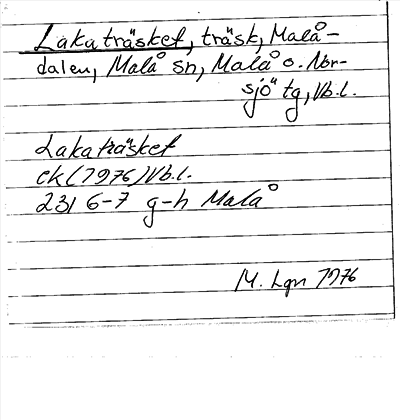 Lakaträsket, träsk, Malå-
dalen, Malå sn, Malå o. Nor-
sjö tg, Vb.l.
Lakaträsket
ek (1976) Vb.l.
23I 6-7 g-h Malå
M. Lgn 1976